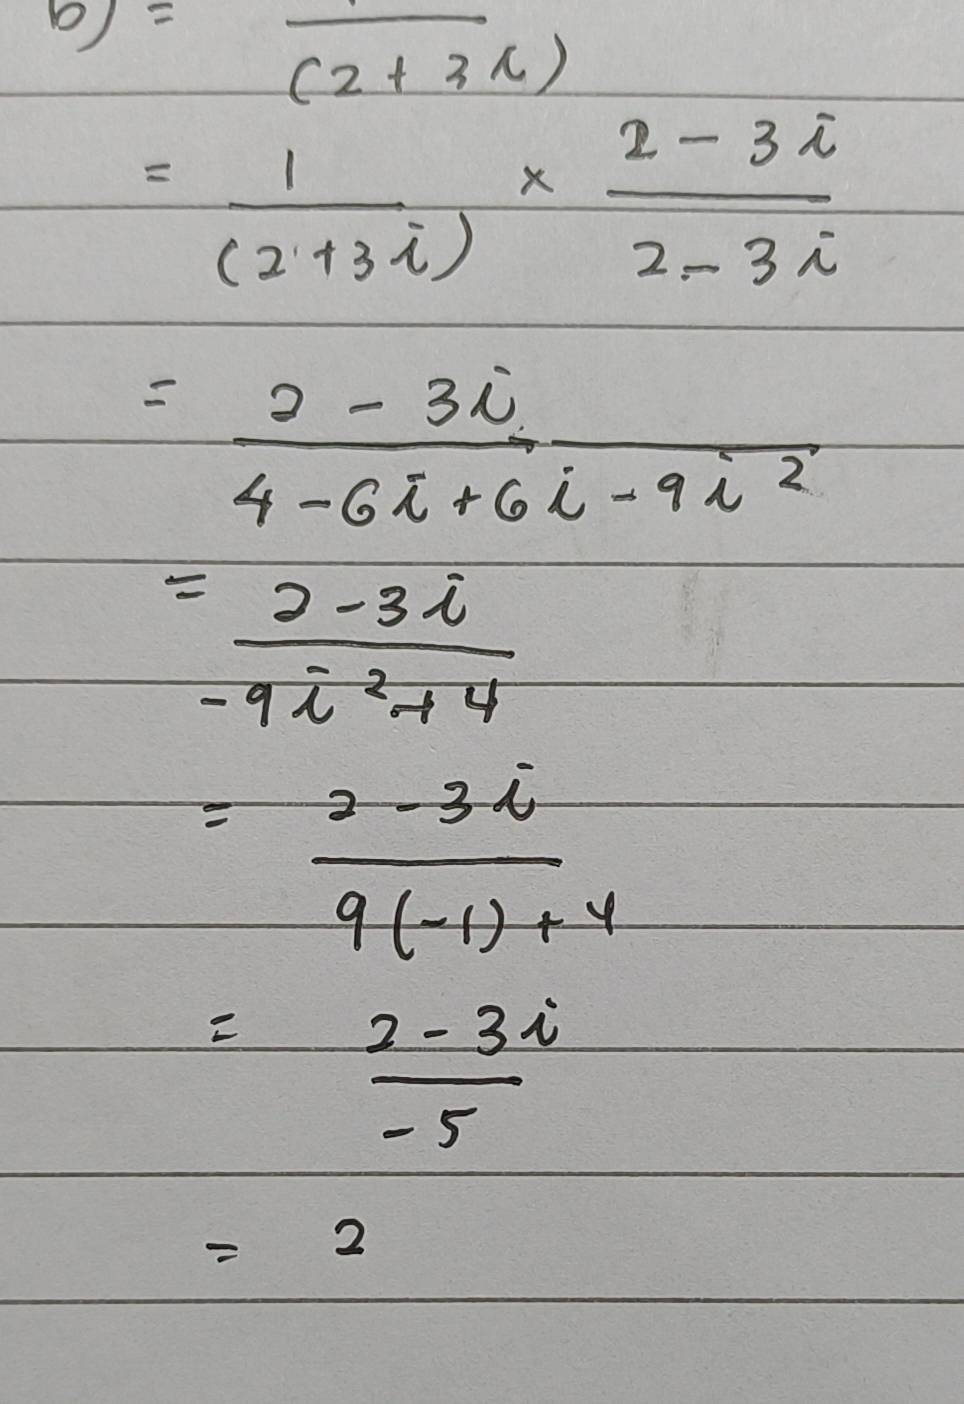 b) =
(2 + 3i)
= 1 / (2 + 3i) × 2 - 3i / 2 - 3i
= 2 - 3i / 4 - 6i + 6i - 9i²
= 2 - 3i / -9i² + 4
= 2 - 3i / 9(-1) + 4
= 2 - 3i / -5
= 2